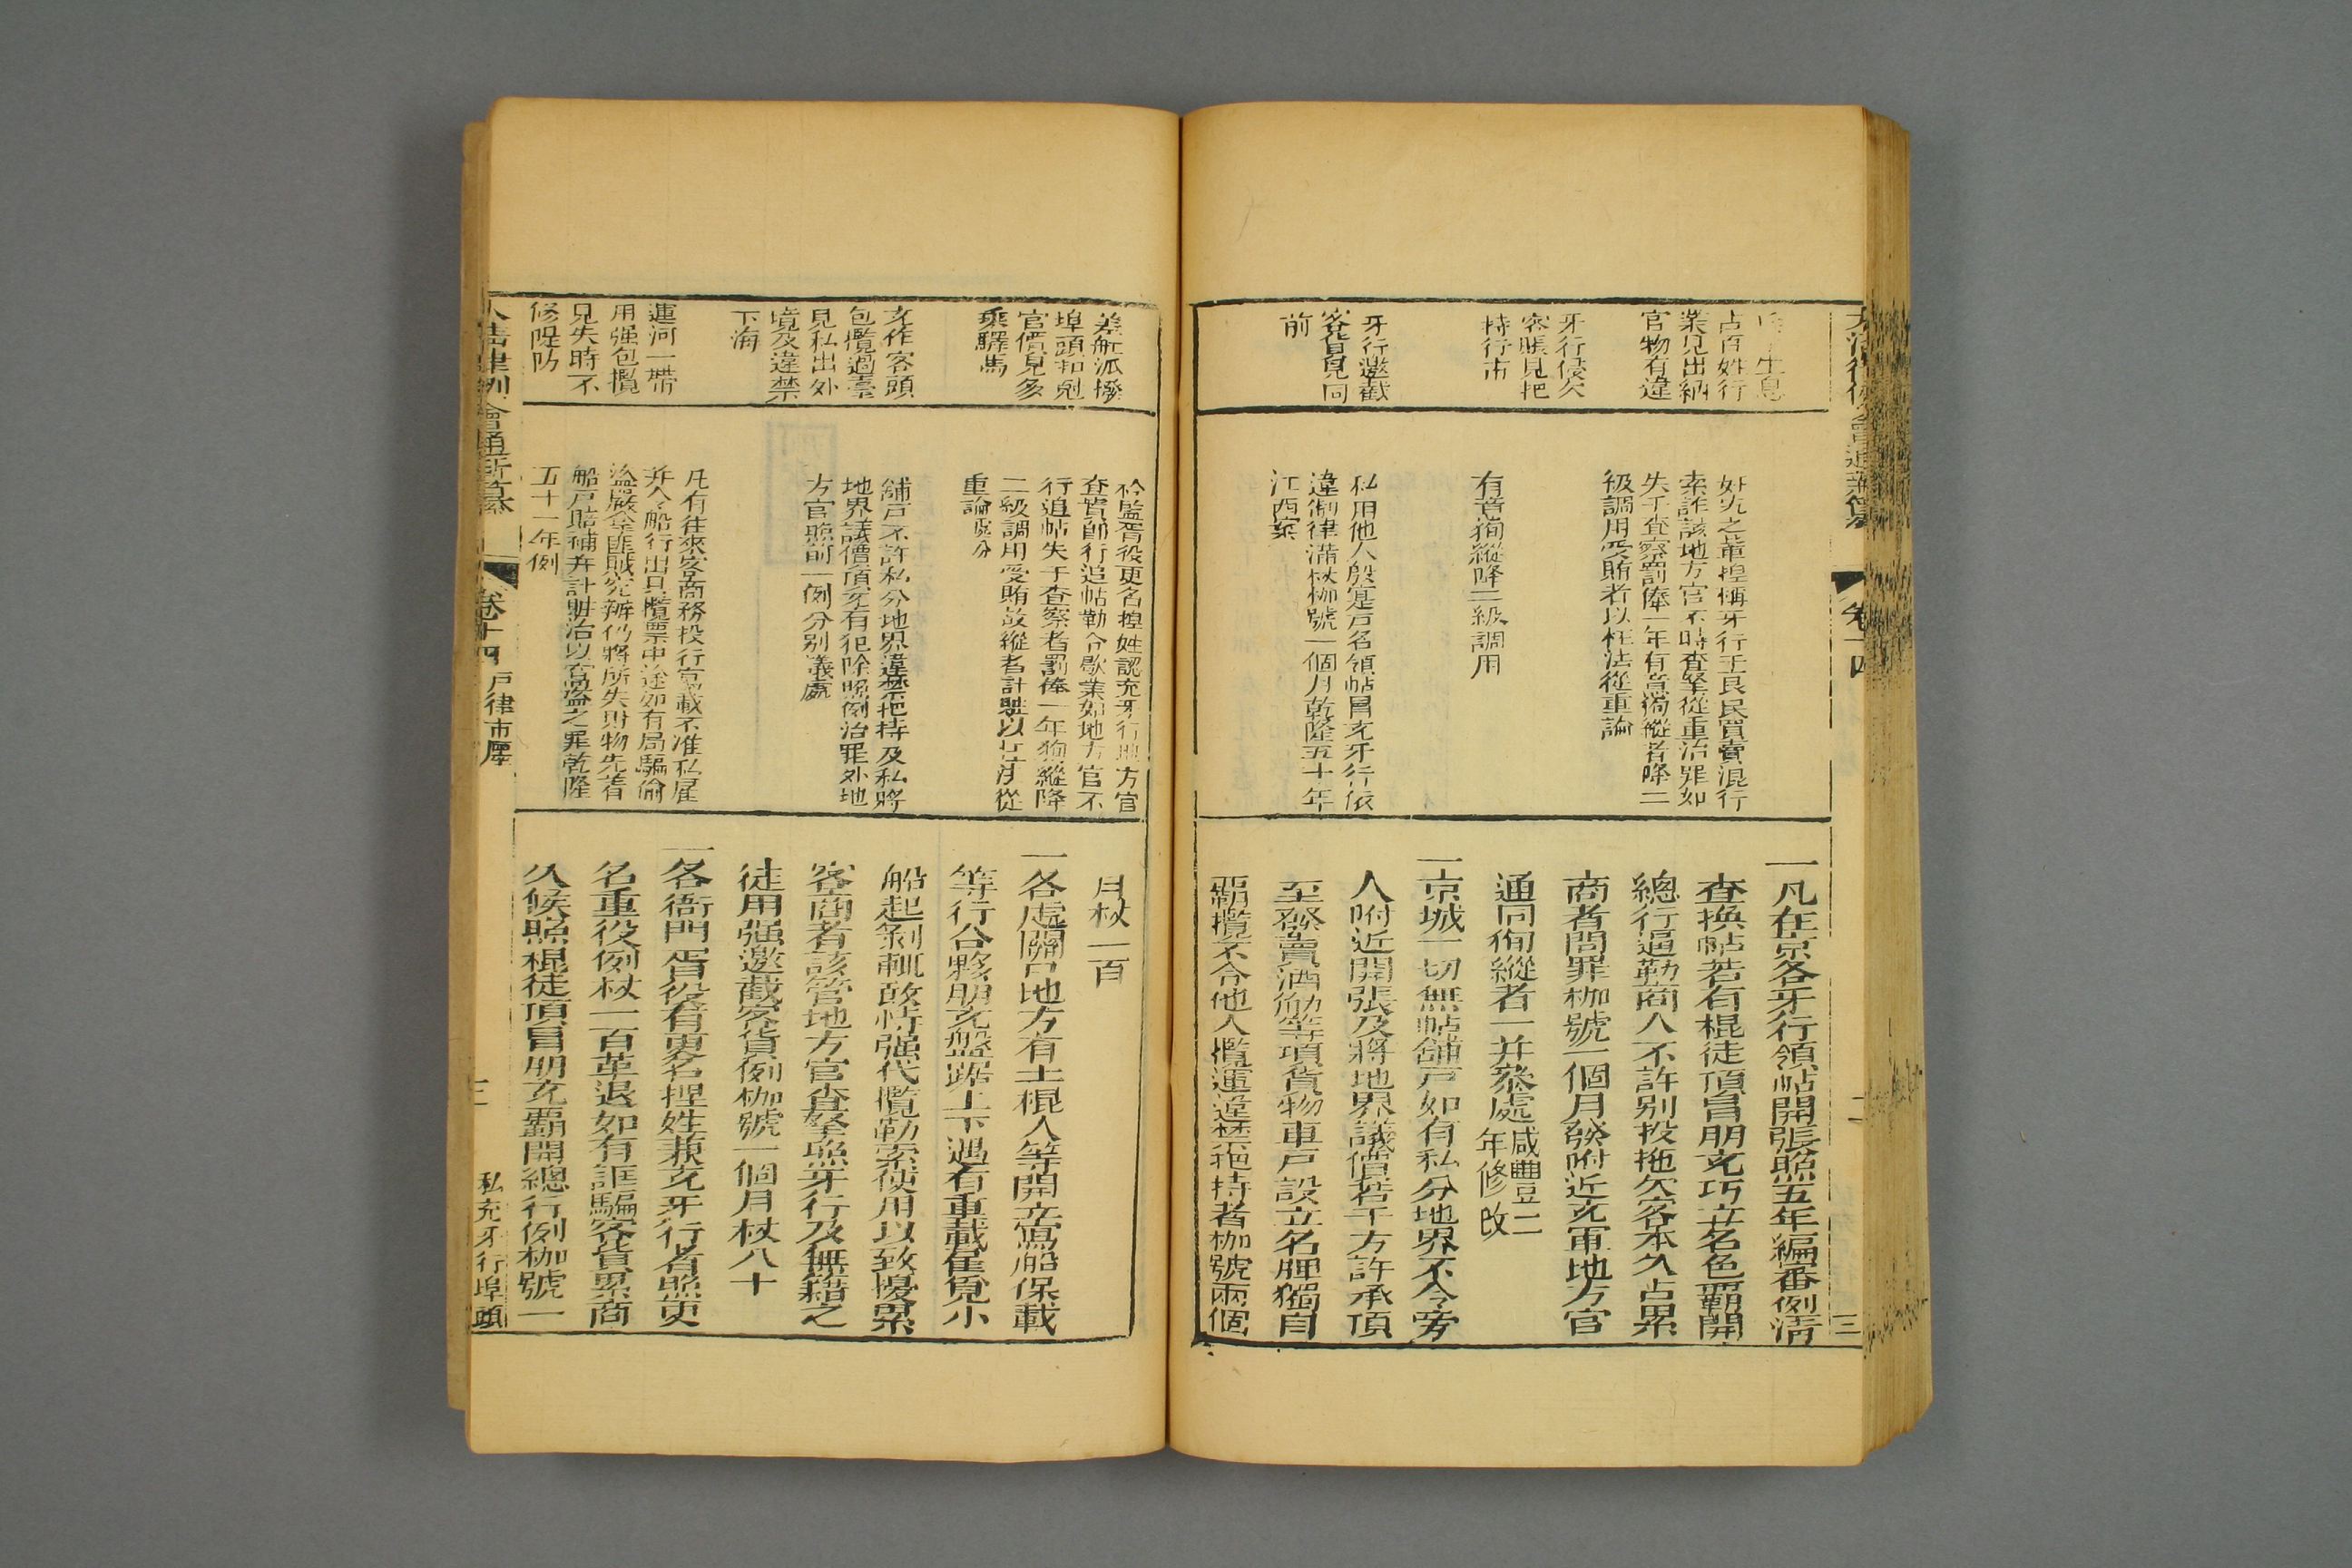 占百姓行
業見出納
官物有違
牙行侵欠
客賬見把
持行市
牙行邀截
客貨見同
前
奸宄之輩捏稱牙行于良民買賣混行
索詐該地方官不時查拏從重治罪如
失于查察罰俸一年有意徇縱者降二
級調用受賄者以枉法從重論
有意徇縱降三級調用
私用他人殷實戶名領帖冒充牙行依
違制律滿杖枷號一個月乾隆五十年
江西案
一凡在京各牙行領帖開張照五年編審例清
查換帖若有棍徒頂冒朋充巧立名色霸開
總行逼勒商人不許别投拖欠客本久占累
商者問罪枷號一個月發附近充軍地方官
通同徇縱者一并叅處咸豐二
年修改
一京城一切無帖舖戶如有私分地界不令旁
人附近開張及將地界議價若干方許承頂
至發賣酒觔等項貨物車戶設立名牌獨自
霸攬不令他人攬運違禁把持者枷號兩個
卷十四
差船派撥
埠頭扣剋
官價見多
乘驛馬
充作客頭
包攬過臺
見私出外
境及違禁
下海
運河一帶
用强包攬
見失時不
修隄防
衿監胥役更名捏姓認充牙行地方官
查實即行追帖勒令歇業如地方官不
行追帖失于查察者罰俸一年徇縱降
二級調用受賄故縱者計贓以枉法從
重論處分
舖戶不許私分地界違禁把持及私將
地界議價頂充有犯除照例治罪外地
方官照前一例分別議處
凡有往來客商務投行寫載不准私雇
并令船行出具攬票中途如有局騙偷
盜嚴拿匪賊究辦仍將所失財物先着
船戶賠補并計贓治以竊盜之罪乾隆
五十一年例
月杖一百
一各處關口地方有土棍人等開立寫船保載
等行合夥朋充盤踞上下遇有重載雇覓小
船起剝輒敢恃强代攬勒索使用以致擾累
客商者該管地方官查拏照牙行及無籍之
徒用强邀截客貨例枷號一個月杖八十
一各衙門胥役有更名捏姓兼充牙行者照更
名重役例杖一百革退如有誆騙客貨累商
久候照棍徒頂冒朋充霸開總行例枷號一
大清律例會通新纂
卷十四
戶律市廛
三
私充牙行埠頭